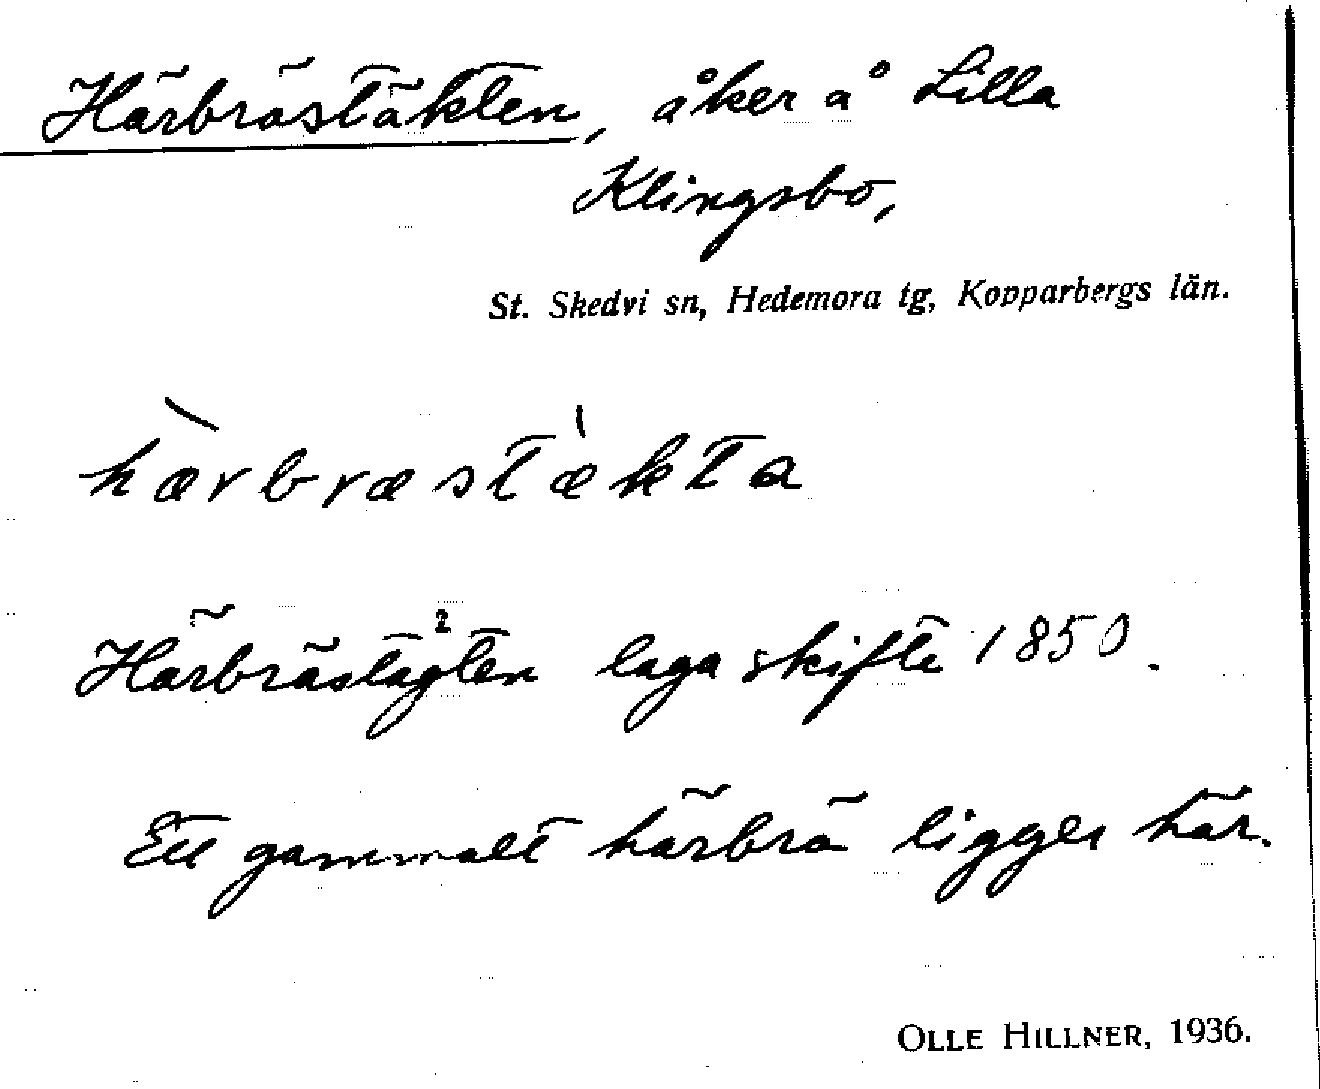 Härbrästäkten, åker å Lilla
Klingsbo,
St. Skedvi sn, Hedemora tg, Kopparbergs län.
hærbræstækta
Härbrästagten laga skifte 1850.
Ett gammalt härbrä ligger här.
OLLE HILLNER, 1936.